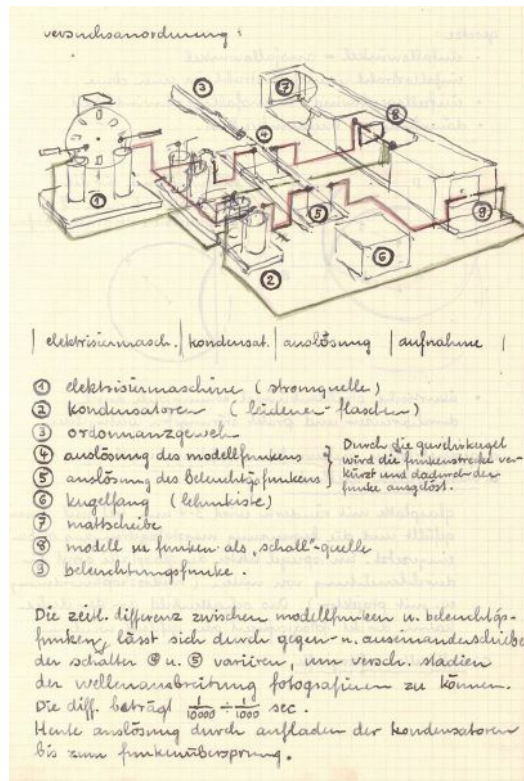 versuchsanordnung:
③
⑦
④
⑧
①
⑤
⑨
⑥
②
| elektrisiermasch. | kondensat. | auslösung | aufnahme |
① elektrisiermaschine (stromquelle)
② kondensatoren (leidener-flaschen)
③ ordonnanzgewehr
④ auslösung des modellfunkens
⑤ auslösung des Beleuchtgsfunkens
} Durch die gewehrkugel
wird die funkenstrecke ver-
kürzt und dadurch der
funke ausgelöst.
⑥ kugelfang (lehmkiste)
⑦ mattscheibe
⑧ modell m funken als „schall"-quelle
⑨ beleuchtungsfunke.
Die zeitl. differenz zwischen modellfunken u. beleuchtgs-
funken, lässt sich durch gegen- u. auseinanderschieben
der schalter ④ u. ⑤ variiren, um versch. stadien
der wellenausbreitung fotografieren zu können.
Die diff. beträgt 1/10000 ÷ 1/1000 sec.
Heute auslösung durch aufladen der kondensatoren
bis zum funkenübersprung.